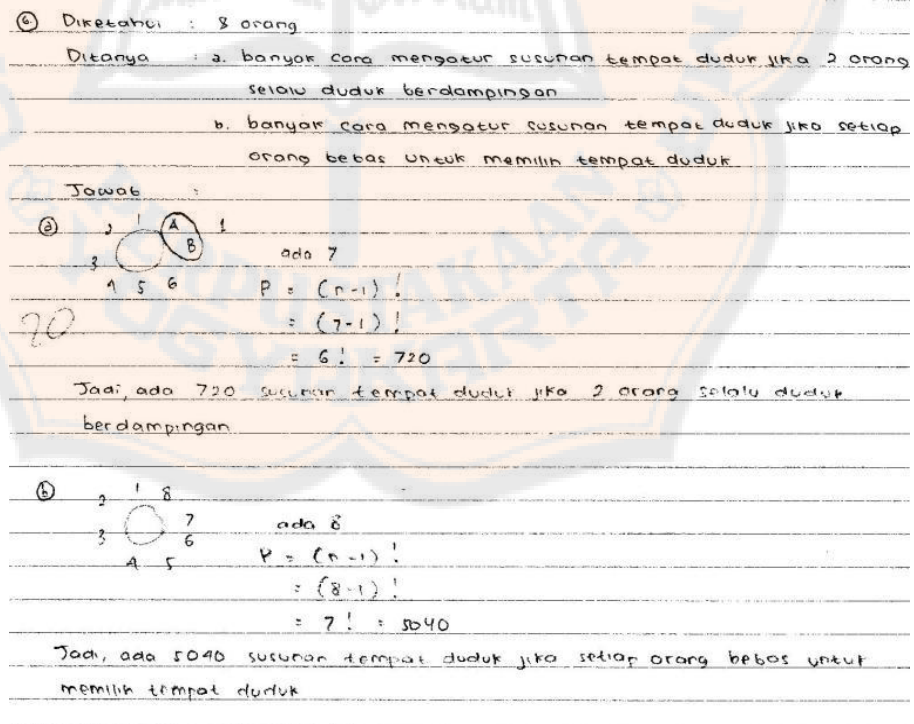 6. Diketahui : 8 orang
Ditanya : a. banyak cara mengatur susunan tempat duduk jika 2 orang
selalu duduk berdampingan
b. banyak cara mengatur susunan tempat duduk jika setiap
orang bebas untuk memilih tempat duduk
Jawab :
a 2 1 A B 1
3 ada 7
4 5 6 P = (n-1)!
20 = (7-1)!
= 6! = 720
Jadi, ada 720 susunan tempat duduk jika 2 orang selalu duduk
berdampingan
b 2 1 8
3 7 6 ada 8
4 5 P = (n-1)!
= (8-1)!
= 7! = 5040
Jadi, ada 5040 susunan tempat duduk jika setiap orang bebas untuk
memilih tempat duduk